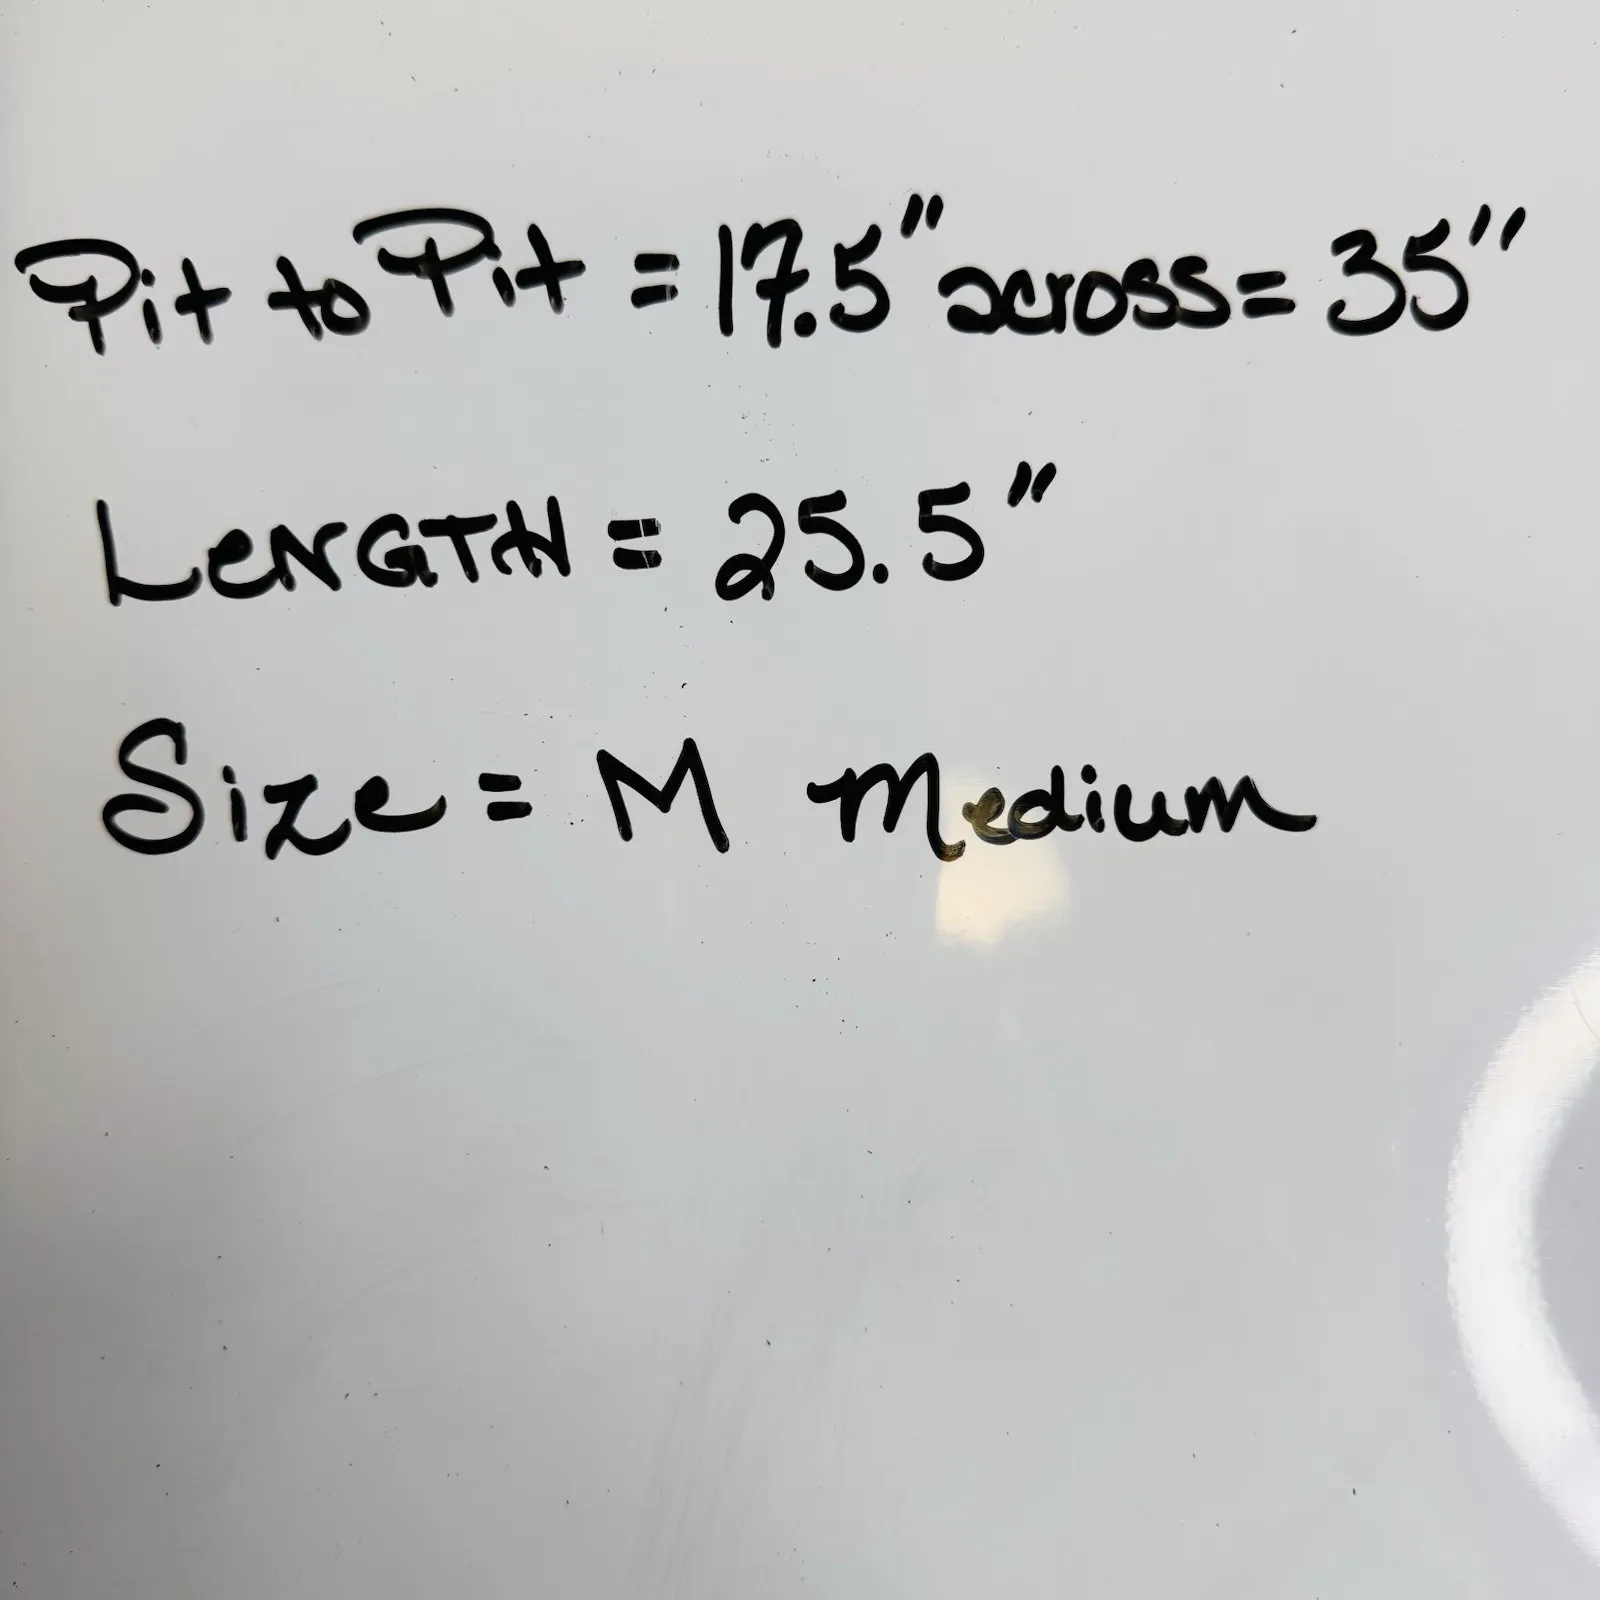 Pit to Pit = 17.5" across = 35"
LeNGTH = 25.5"
Size = M Medium